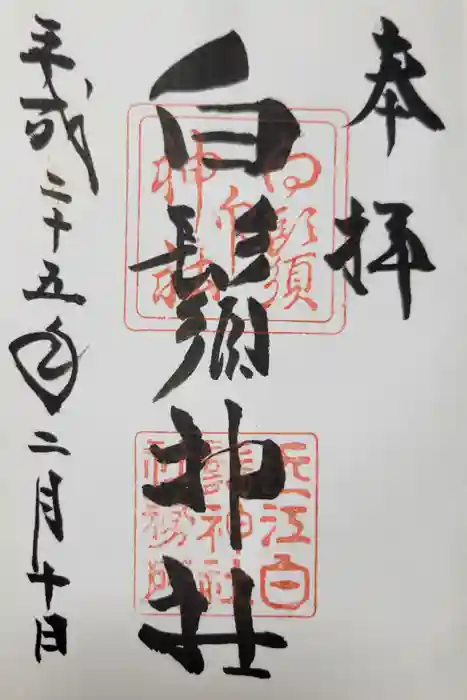 奉拝
白鬚神社
平成二十五年二月十日
近江白
鬚神社
社務所